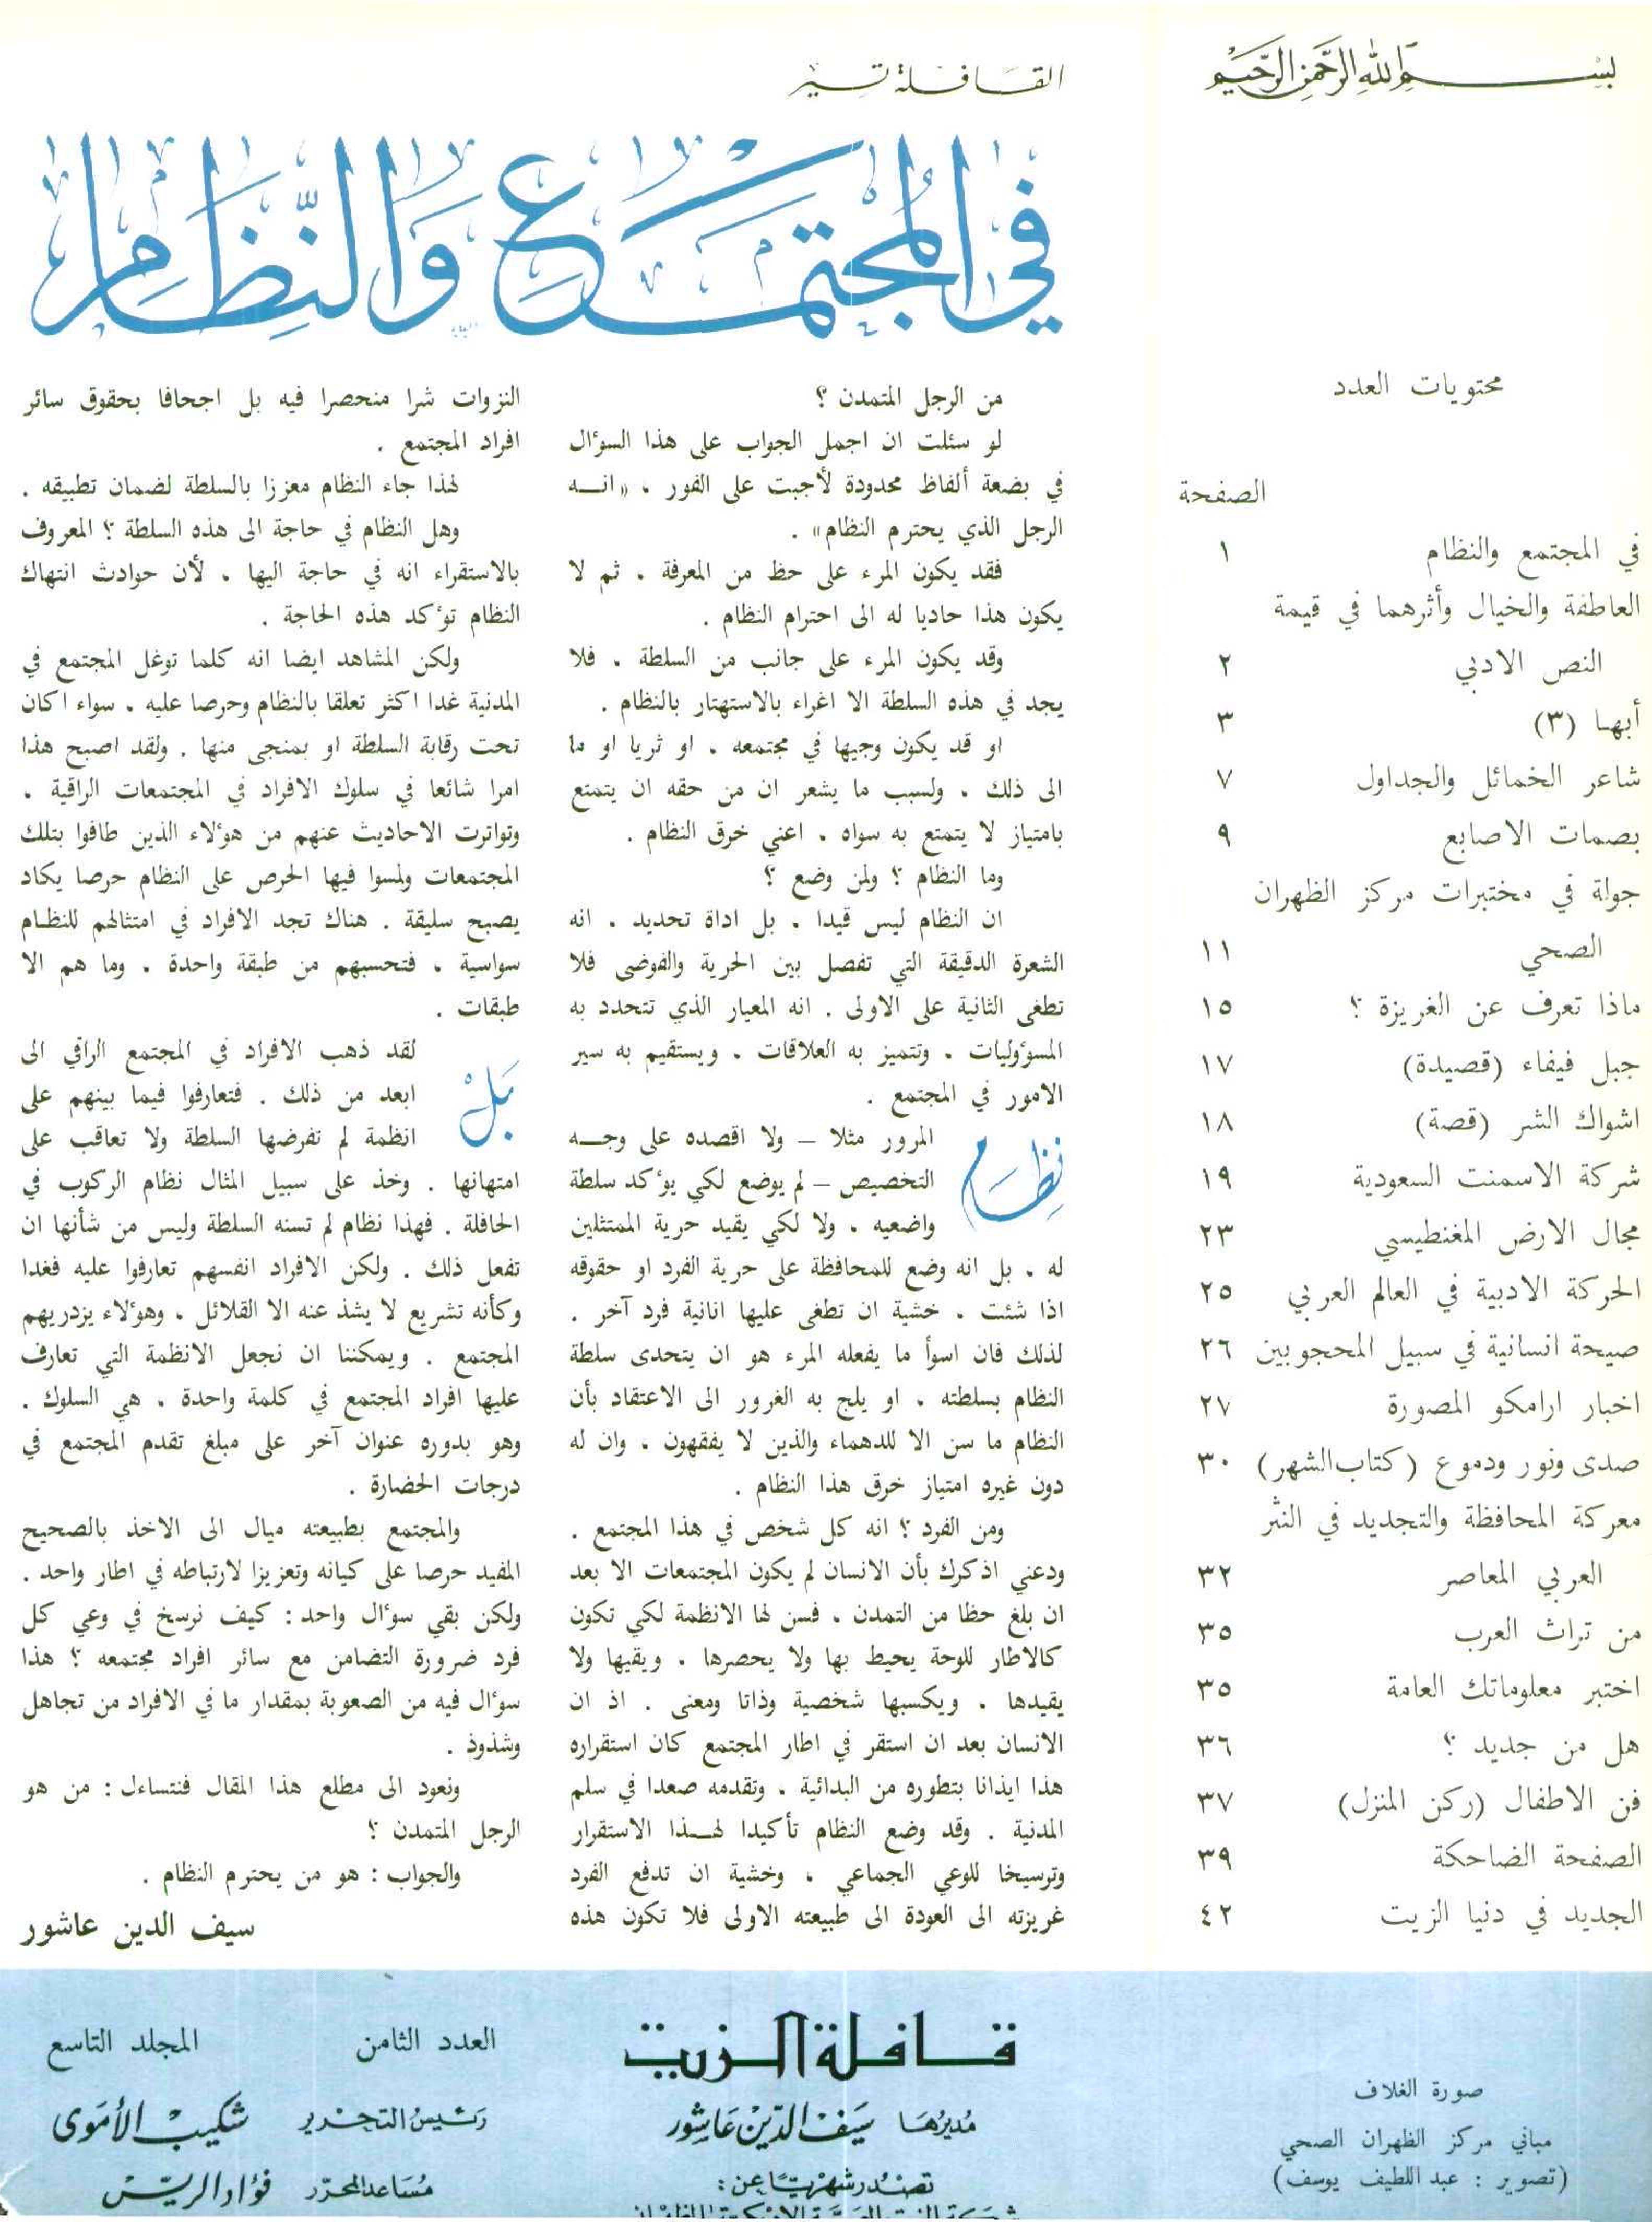 بسم الله الرحمن الرحيم
محتويات العدد
الصفحة
في المجتمع والنظام ١
العاطفة والخيال وأثرهما في قيمة
النص الادبي ٢
أبها (٣) ٣
شاعر الخمائل والجداول ٧
بصمات الاصابع ٩
جولة في مختبرات مركز الظهران
الصحي ١١
ماذا تعرف عن الغريزة ؟ ١٥
جبل فيفاء (قصيدة) ١٧
اشواك الشر (قصة) ١٨
شركة الاسمنت السعودية ١٩
مجال الارض المغنطيسي ٢٣
الحركة الادبية في العالم العربي ٢٥
صيحة انسانية في سبيل المحجوبين ٢٦
اخبار ارامكو المصورة ٢٧
صدى ونور ودموع (كتاب الشهر) ٣٠
معركة المحافظة والتجديد في النثر
العربي المعاصر ٣٢
من تراث العرب ٣٥
اختبر معلوماتك العامة ٣٥
هل من جديد ؟ ٣٦
فن الاطفال (ركن المنزل) ٣٧
الصفحة الضاحكة ٣٩
الجديد في دنيا الزيت ٤٢
القافلة تسير
في المجتمع والنظام
من الرجل المتمدن ؟
لو سئلت ان اجمل الجواب على هذا السؤال
في بضعة ألفاظ محدودة لأجبت على الفور ، «انه
الرجل الذي يحترم النظام» .
فقد يكون المرء على حظ من المعرفة ، ثم لا
يكون هذا حاديا له الى احترام النظام .
وقد يكون المرء على جانب من السلطة ، فلا
يجد في هذه السلطة الا اغراء بالاستهتار بالنظام .
او قد يكون وجيها في مجتمعه ، او ثريا او ما
الى ذلك ، ولسبب ما يشعر ان من حقه ان يتمتع
بامتياز لا يتمتع به سواه ، اعني خرق النظام .
وما النظام ؟ ولمن وضع ؟
ان النظام ليس قيدا ، بل اداة تحديد ، انه
الشعرة الدقيقة التي تفصل بين الحرية والفوضى فلا
تطغى الثانية على الاولى . انه المعيار الذي تتحدد به
المسؤوليات ، وتتميز به العلاقات ، ويستقيم به سير
الامور في المجتمع .
نظام المرور مثلا – ولا اقصده على وجه
التخصيص – لم يوضع لكي يؤكد سلطة
واضعيه ، ولا لكي يقيد حرية الممتثلين
له ، بل انه وضع للمحافظة على حرية الفرد او حقوقه
اذا شئت ، خشية ان تطغى عليها انانية فرد آخر .
لذلك فان اسوأ ما يفعله المرء هو ان يتحدى سلطة
النظام بسلطته ، او يلج به الغرور الى الاعتقاد بأن
النظام ما سن الا للدهماء والذين لا يفقهون ، وان له
دون غيره امتياز خرق هذا النظام .
ومن الفرد ؟ انه كل شخص في هذا المجتمع .
ودعني اذكرك بأن الانسان لم يكون المجتمعات الا بعد
ان بلغ حظا من التمدن ، فسن لها الانظمة لكي تكون
كالاطار للوحة يحيط بها ولا يحصرها ، ويقيها ولا
يقيدها ، ويكسبها شخصية وذاتا ومعنى . اذ ان
الانسان بعد ان استقر في اطار المجتمع كان استقراره
هذا ايذانا بتطوره من البدائية ، وتقدمه صعدا في سلم
المدنية . وقد وضع النظام تأكيدا لهذا الاستقرار
وترسيخا للوعي الجماعي ، وخشية ان تدفع الفرد
غريزته الى العودة الى طبيعته الاولى فلا تكون هذه
النزوات شرا منحصرا فيه بل اجحافا بحقوق سائر
افراد المجتمع .
لهذا جاء النظام معززا بالسلطة لضمان تطبيقه .
وهل النظام في حاجة الى هذه السلطة ؟ المعروف
بالاستقراء انه في حاجة اليها ، لأن حوادث انتهاك
النظام تؤكد هذه الحاجة .
ولكن المشاهد ايضا انه كلما توغل المجتمع في
المدنية غدا اكثر تعلقا بالنظام وحرصا عليه ، سواء اكان
تحت رقابة السلطة او بمنجى منها . ولقد اصبح هذا
امرا شائعا في سلوك الافراد في المجتمعات الراقية .
وتواترت الاحاديث عنهم من هؤلاء الذين طافوا بتلك
المجتمعات ولمسوا فيها الحرص على النظام حرصا يكاد
يصبح سليقة . هناك تجد الافراد في امتثالهم للنظام
سواسية ، فتحسبهم من طبقة واحدة ، وما هم الا
طبقات .
بل لقد ذهب الافراد في المجتمع الراقي الى
ابعد من ذلك . فتعارفوا فيما بينهم على
انظمة لم تفرضها السلطة ولا تعاقب على
امتهانها . وخذ على سبيل المثال نظام الركوب في
الحافلة . فهذا نظام لم تسنه السلطة وليس من شأنها ان
تفعل ذلك . ولكن الافراد انفسهم تعارفوا عليه فغدا
وكأنه تشريع لا يشذ عنه الا القلائل ، وهؤلاء يزدريهم
المجتمع . ويمكننا ان نجعل الانظمة التي تعارف
عليها افراد المجتمع في كلمة واحدة ، هي السلوك .
وهو بدوره عنوان آخر على مبلغ تقدم المجتمع في
درجات الحضارة .
والمجتمع بطبيعته ميال الى الاخذ بالصحيح
المفيد حرصا على كيانه وتعزيزا لارتباطه في اطار واحد .
ولكن بقي سؤال واحد : كيف نرسخ في وعي كل
فرد ضرورة التضامن مع سائر افراد مجتمعه ؟ هذا
سؤال فيه من الصعوبة بمقدار ما في الافراد من تجاهل
وشذوذ .
ونعود الى مطلع هذا المقال فنتساءل : من هو
الرجل المتمدن ؟
والجواب : هو من يحترم النظام .
سيف الدين عاشور
صورة الغلاف
مباني مركز الظهران الصحي
(تصوير : عبد اللطيف يوسف)
قافلة الزيت
مديرها سيف الدين عاشور
تصدر شهريا عن :
العدد الثامن المجلد التاسع
رئيس التحرير شكيب الأموي
مساعد المحرر فؤاد الريس